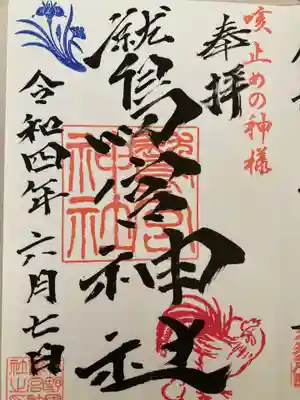 咳止めの神様
奉拝
鷲宮神社
鷲宮神社
令和四年六月七日